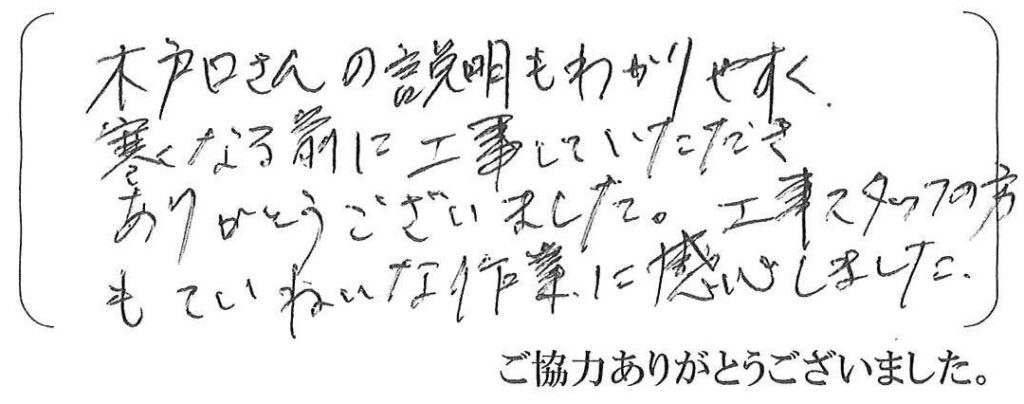 木戸口さんの説明もわかりやすく、
寒くなる前に工事していただき
ありがとうございました。工事スタッフの方
もていねいな作業に感心しました。
ご協力ありがとうございました。